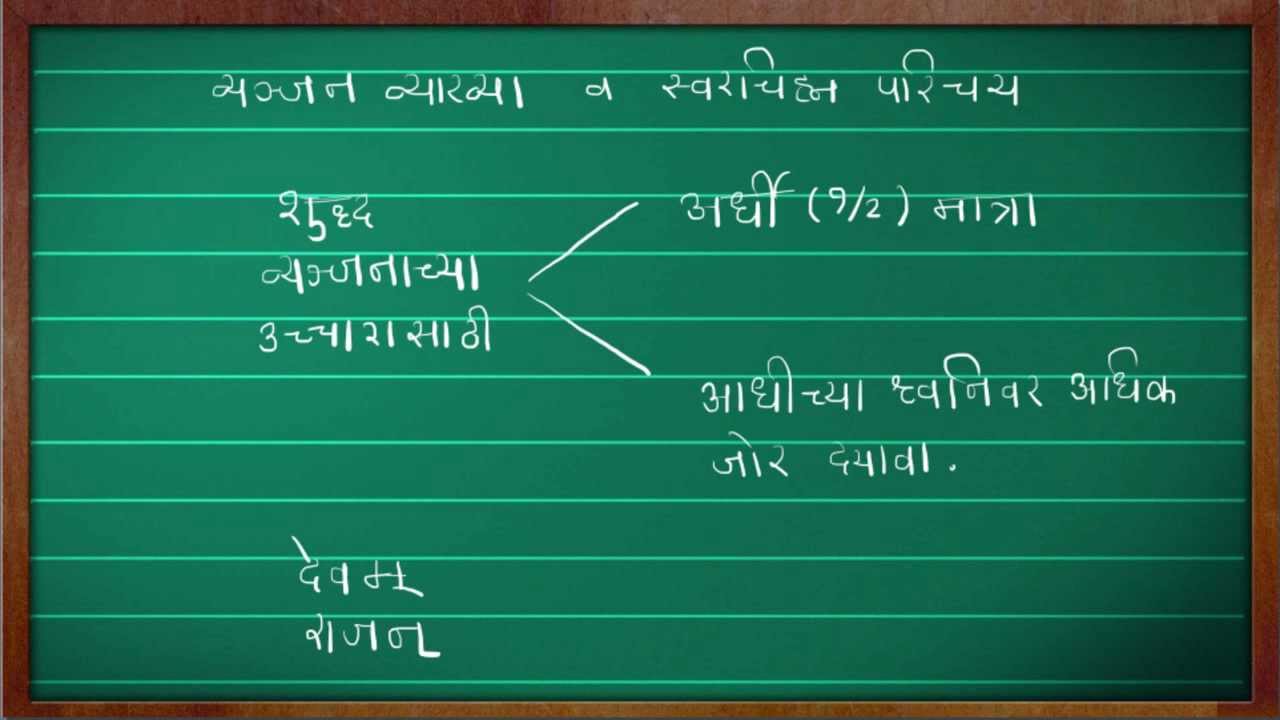 व्यञ्जन व्याख्या व स्वरचिह्न परिचय
शुद्ध
व्यञ्जनाच्या
उच्चारासाठी
अर्धी (१/२) मात्रा
आधीच्या ध्वनिवर अधिक
जोर दयावा.
देवम्
राजन्